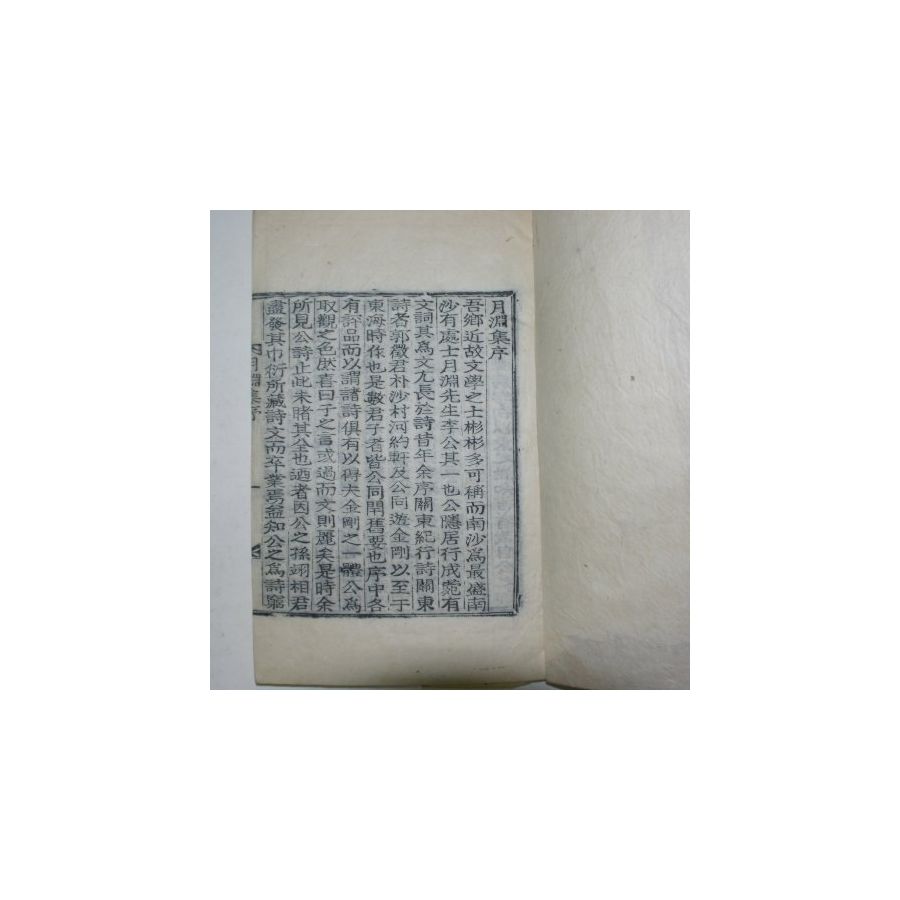 月淵集序
吾鄉近故文學之士彬彬多可稱而南沙爲最盛南
沙有處士月淵先生李公其一也公隱居行成𮗚有
文詞其爲文尤長於詩昔年余序關東紀行詩關東
詩者郭徵君朴沙村河約軒及公同遊金剛以至于
東海時作也是數君子者皆公同閈舊要也序中各
有評品而以謂諸詩俱有以得夫金剛之一體公爲
取觀之色然喜曰子之言或過而文則麗矣是時余
所見公詩止此未睹其全也迺者因公之孫翊相君
盡發其巾衍所藏詩文而卒業焉益知公之爲詩竆
月淵集序